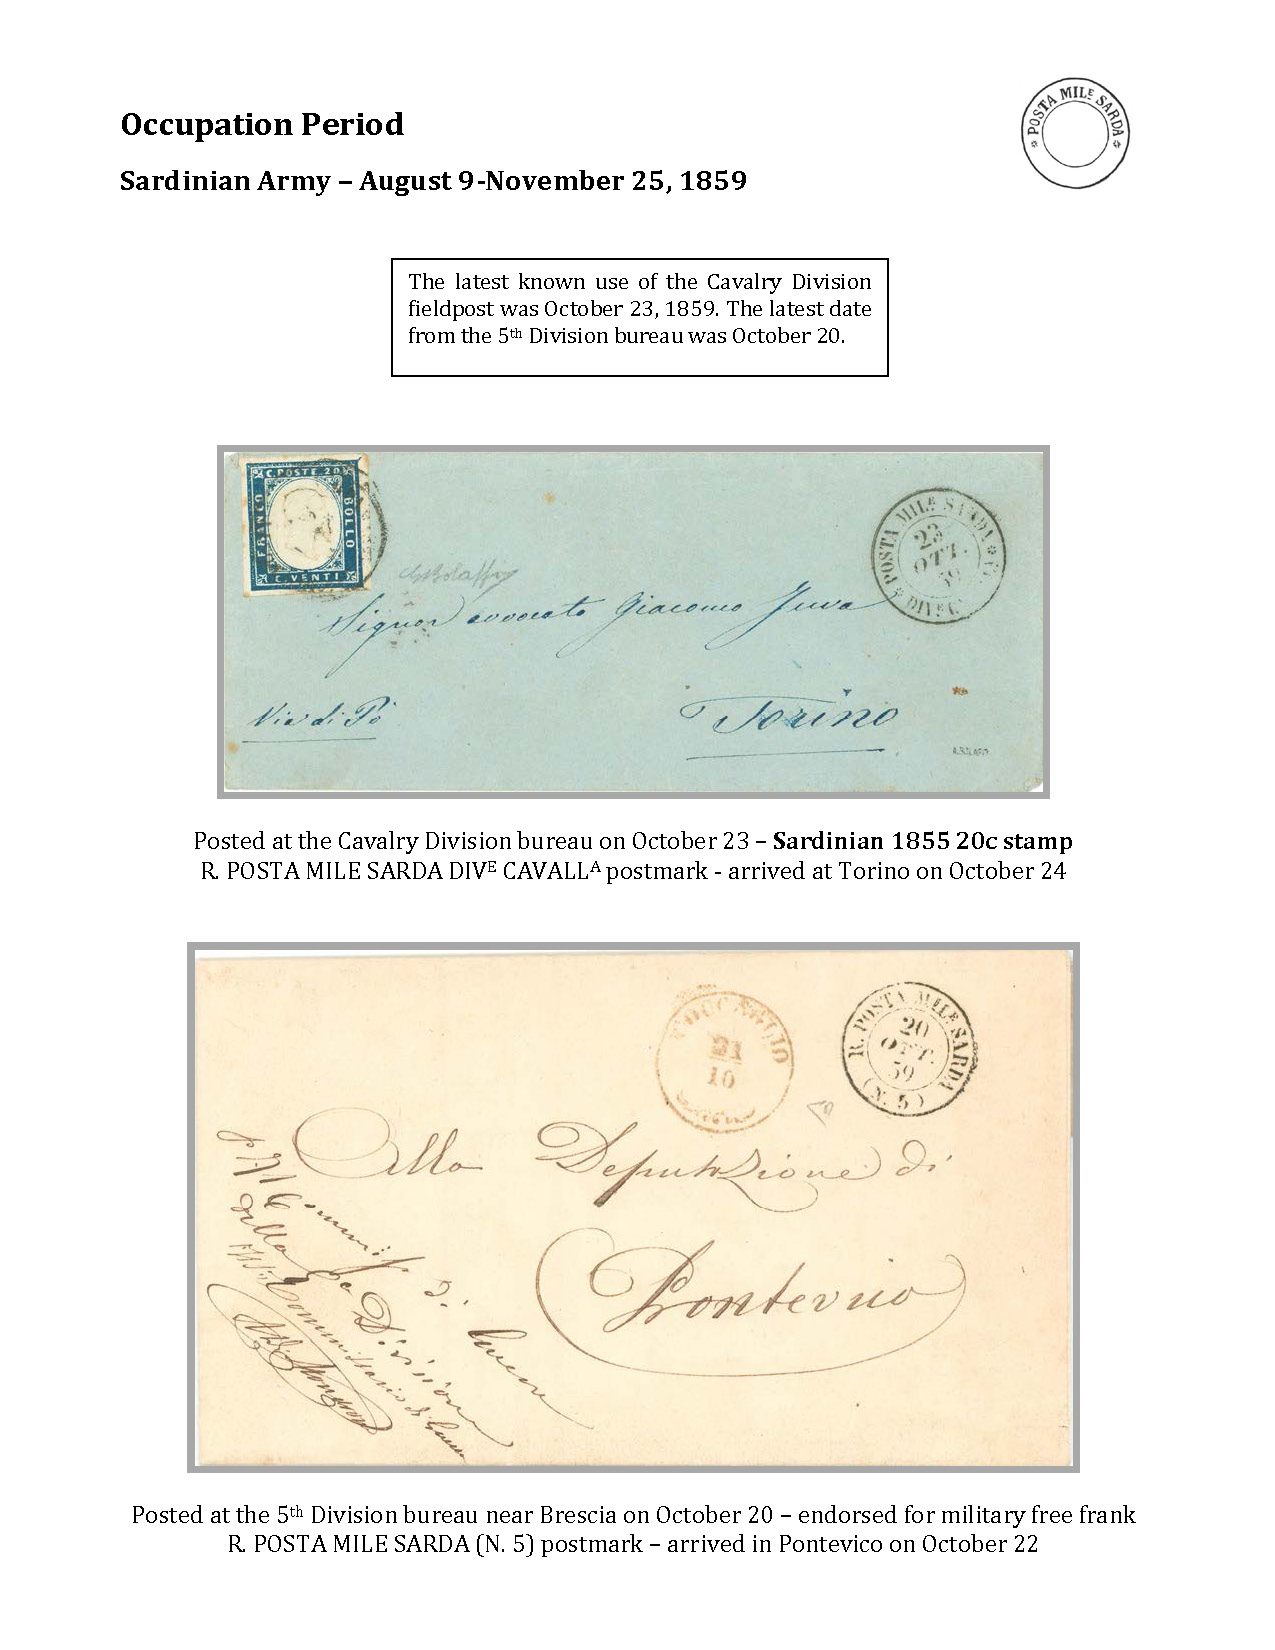 Occupation Period
* POSTA MILE SARDA *
Sardinian Army – August 9-November 25, 1859
The latest known use of the Cavalry Division
fieldpost was October 23, 1859. The latest date
from the 5th Division bureau was October 20.
C. POSTE 20
FRANCO
BOLLO
C. VENTI
POSTA MILE SARDA
23
OTT.
59
DIVE C
Signor avvocato Giacomo Juva
Via di Pò
Torino
Posted at the Cavalry Division bureau on October 23 – Sardinian 1855 20c stamp
R. POSTA MILE SARDA DIVE CAVALLA postmark - arrived at Torino on October 24
21
10
R. POSTA MILE SARDA
20
OTT.
59
(N. 5)
Alla Deputazione di
Pontevico
di Guerra
della 5a Divisione
Posted at the 5th Division bureau near Brescia on October 20 – endorsed for military free frank
R. POSTA MILE SARDA (N. 5) postmark – arrived in Pontevico on October 22